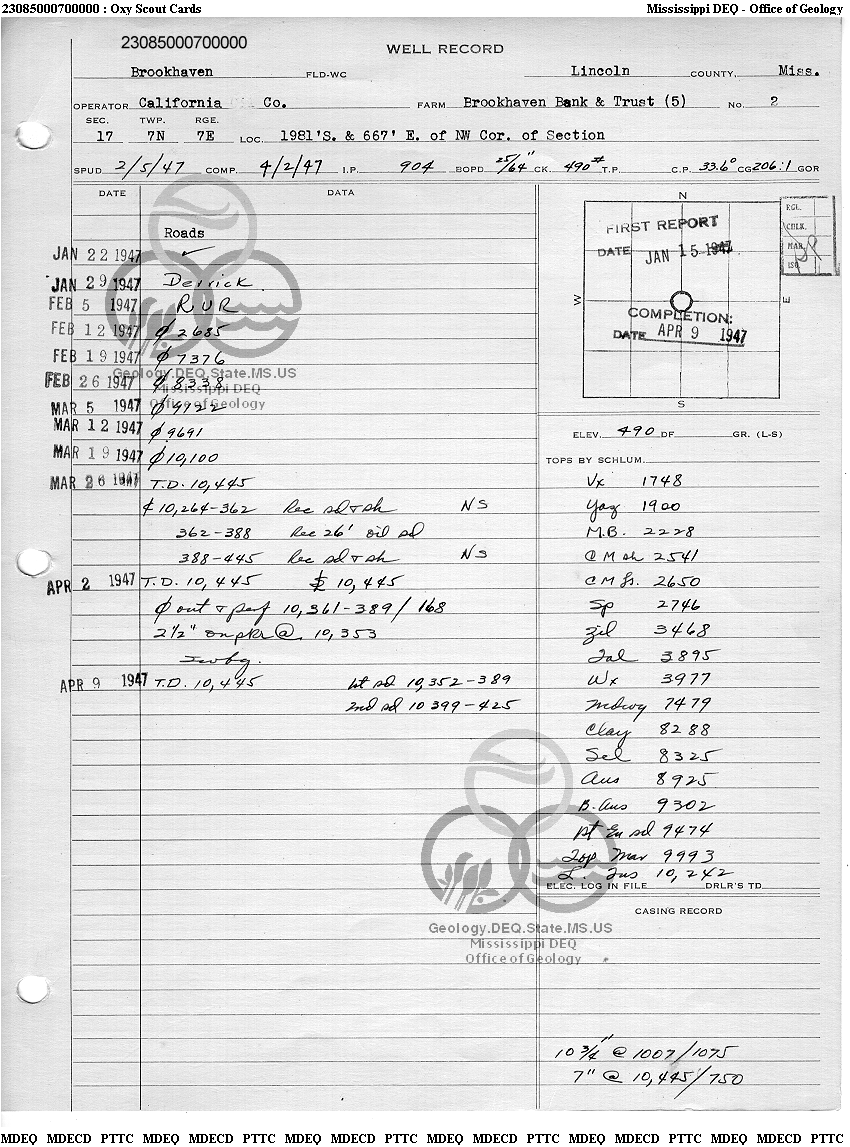 23085000700000 : Oxy Scout Cards Mississippi DEQ - Office of Geology
23085000700000
WELL RECORD
Brookhaven FLD-WC Lincoln COUNTY, Miss.
OPERATOR California Co. FARM Brookhaven Bank & Trust (5) No. 2
SEC. TWP. RGE.
17 7N 7E LOC. 1981'S. & 667' E. of NW Cor. of Section
SPUD 2/5/47 COMP. 4/2/47 I.P. 904 BOPD 25/64" CK. 490# T.P. C.P. 33.6° CG 206:1 GOR
DATE DATA
Roads
JAN 22 1947 ✓
JAN 29 1947 Derrick
FEB 5 1947 RUR
FEB 12 1947 ∅ 2685
FEB 19 1947 ∅ 7376
FEB 26 1947 ∅ 8338
MAR 5 1947 ∅ 9122
MAR 12 1947 ∅ 9691
MAR 19 1947 ∅ 10,100
MAR 26 1947 T.D. 10,445
₵ 10,264-362 Rec sd & sh NS
362-388 Rec 26' oil sd
388-445 Rec sd & sh NS
APR 2 1947 T.D. 10,445 10,445
∅ out & perf 10,361-389/168
2½" on pkr @ 10,353
Swbg.
APR 9 1947 T.D. 10,445 1st sd 10,352-389
2nd sd 10 399-425
Geology.DEQ.State.MS.US
Mississippi DEQ
Office of Geology
N
W
E
S
FIRST REPORT
DATE JAN 15 1947
COMPLETION:
DATE APR 9 1947
RGL.
CHLK.
MAP
ISO
ELEV. 490 DF GR. (L-S)
TOPS BY SCHLUM.
Vx 1748
Yaz 1900
M.B. 2228
C M sh 2541
C M ls. 2650
Sp 2746
Zil 3468
Tal 3895
Wx 3977
Mdwy 7479
Clay 8288
Sel 8325
Aus 8925
B. Aus 9302
Pt Eu sd 9474
Top Mar 9993
L. Tus 10,242
ELEC. LOG IN FILE DRLR'S TD
CASING RECORD
Geology.DEQ.State.MS.US
Mississippi DEQ
Office of Geology
10 3/4" @ 1007/1075
7" @ 10,445/750
MDEQ MDECD PTTC MDEQ MDECD PTTC MDEQ MDECD PTTC MDEQ MDECD PTTC MDEQ MDECD PTTC MDEQ MDECD PTTC